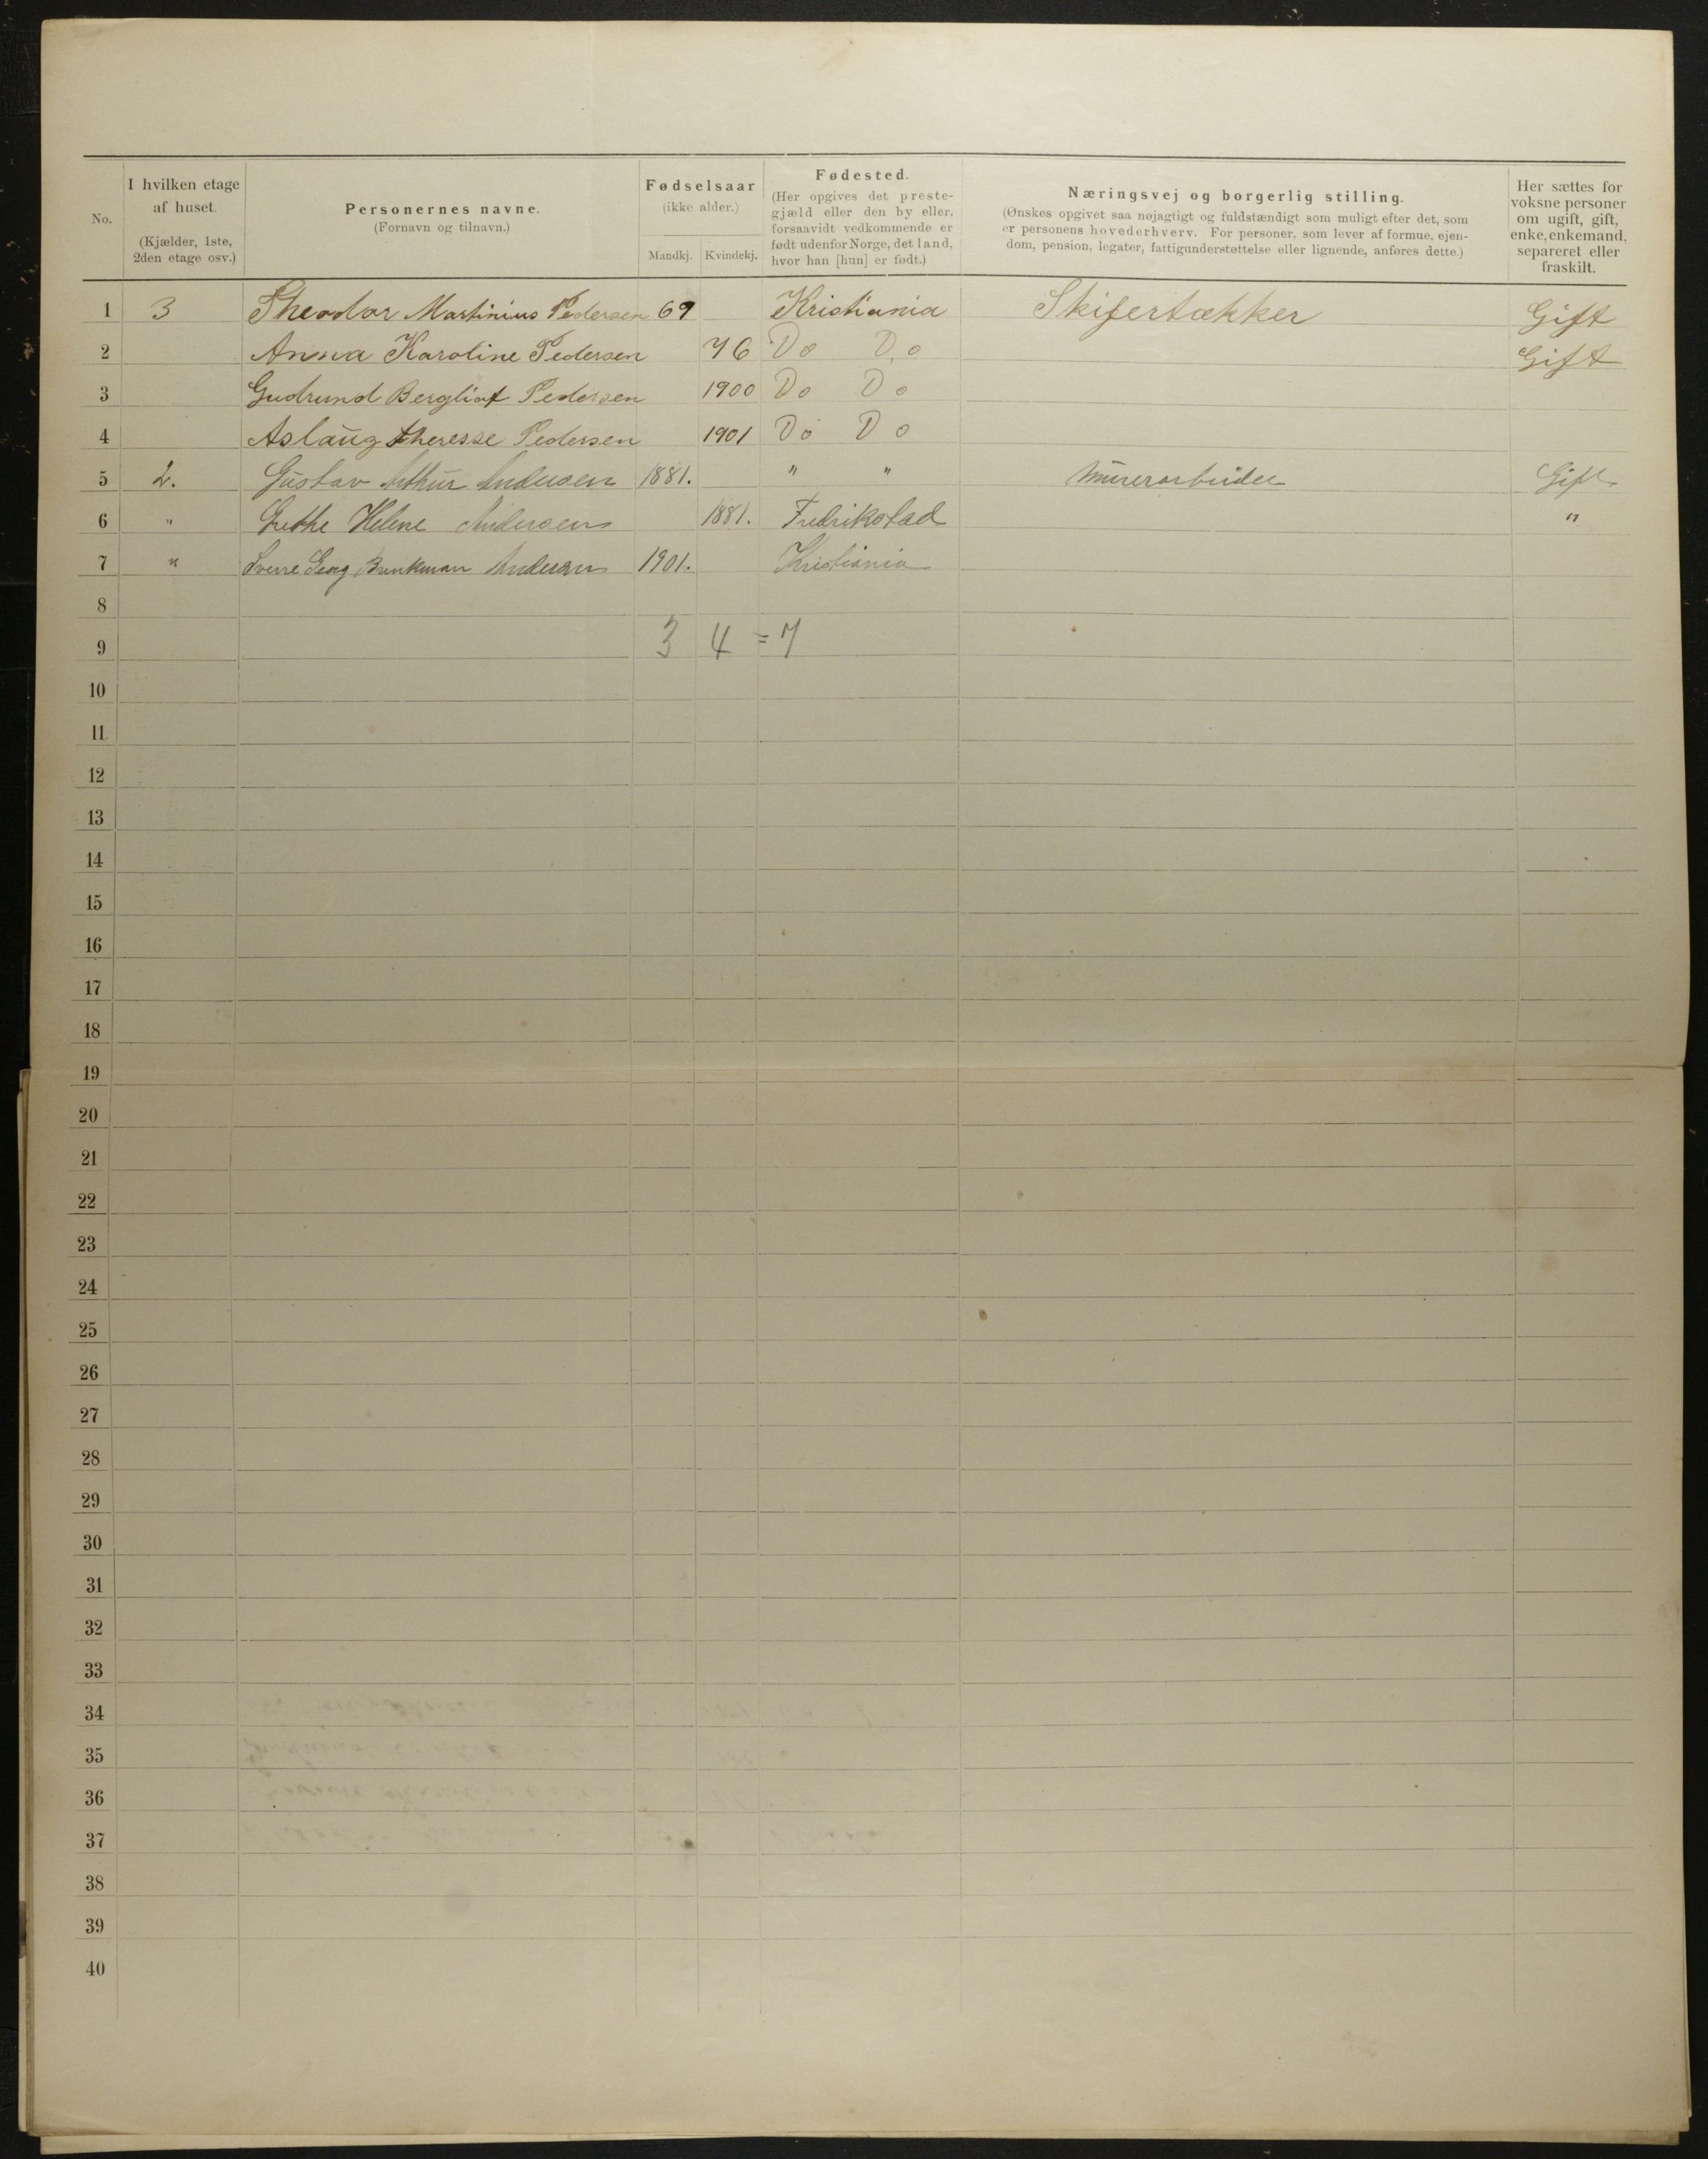 No.
I hvilken etage af huset. (Kjælder, 1ste, 2den etage osv.)
Personernes navne. (Fornavn og tilnavn.)
Fødselsaar (ikke alder.) Mandkj. Kvindekj.
Fødested. (Her opgives det prestegjæld eller den by eller, forsaavidt vedkommende er født udenfor Norge, det land, hvor han [hun] er født.)
Næringsvej og borgerlig stilling. (Ønskes opgivet saa nøjagtigt og fuldstændigt som muligt efter det, som er personens hovederhverv. For personer, som lever af formue, ejendom, pension, legater, fattigunderstøttelse eller lignende, anføres dette.)
Her sættes for voksne personer om ugift, gift, enke, enkemand, separeret eller fraskilt.
1 3 Theodor Martinius Pedersen 69 Kristiania Skifertækker Gift
2 Anna Karoline Pedersen 76 Do Do Gift
3 Gudrund Bergliot Pedersen 1900 Do Do
4 Aslaug Theresse Pedersen 1901 Do Do
5 2. Gustav Arthur Andersen 1881. " " Murerarbeider Gift
6 " Grethe Helene Andersen 1881. Fredrikstad "
7 " Sverre Georg Andersen 1901. Kristiania
8
9 3 4 = 7
10
11
12
13
14
15
16
17
18
19
20
21
22
23
24
25
26
27
28
29
30
31
32
33
34
35
36
37
38
39
40